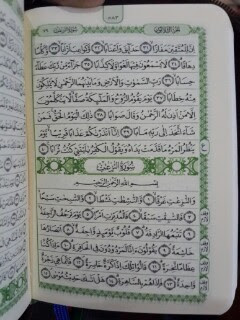 ٥٨٣
إِنَّ لِلْمُتَّقِينَ مَفَازًا ٣١ حَدَائِقَ وَأَعْنَابًا ٣٢ وَكَوَاعِبَ أَتْرَابًا ٣٣ وَكَأْسًا
دِهَاقًا ٣٤ لَا يَسْمَعُونَ فِيهَا لَغْوًا وَلَا كِذَّابًا ٣٥ جَزَاءً مِنْ رَبِّكَ عَطَاءً
حِسَابًا ٣٦ رَبِّ السَّمَٰوَٰتِ وَالْأَرْضِ وَمَا بَيْنَهُمَا الرَّحْمَٰنِ لَا يَمْلِكُونَ
مِنْهُ خِطَابًا ٣٧ يَوْمَ يَقُومُ الرُّوحُ وَالْمَلَٰئِكَةُ صَفًّا لَا يَتَكَلَّمُونَ
إِلَّا مَنْ أَذِنَ لَهُ الرَّحْمَٰنُ وَقَالَ صَوَابًا ٣٨ ذَٰلِكَ الْيَوْمُ الْحَقُّ فَمَنْ
شَاءَ اتَّخَذَ إِلَىٰ رَبِّهِ مَـَٔابًا ٣٩ إِنَّا أَنْذَرْنَٰكُمْ عَذَابًا قَرِيبًا يَوْمَ
يَنْظُرُ الْمَرْءُ مَا قَدَّمَتْ يَدَاهُ وَيَقُولُ الْكَافِرُ يَٰلَيْتَنِي كُنْتُ تُرَابًا ٤٠
سُورَةُ النَّٰزِعَٰتِ
بِسْمِ اللَّهِ الرَّحْمَٰنِ الرَّحِيمِ
وَالنَّٰزِعَٰتِ غَرْقًا ١ وَالنَّٰشِطَٰتِ نَشْطًا ٢ وَالسَّٰبِحَٰتِ سَبْحًا
٣ فَالسَّٰبِقَٰتِ سَبْقًا ٤ فَالْمُدَبِّرَٰتِ أَمْرًا ٥ يَوْمَ تَرْجُفُ الرَّاجِفَةُ
٦ تَتْبَعُهَا الرَّادِفَةُ ٧ قُلُوبٌ يَوْمَئِذٍ وَاجِفَةٌ ٨ أَبْصَٰرُهَا
خَٰشِعَةٌ ٩ يَقُولُونَ أَءِنَّا لَمَرْدُودُونَ فِي الْحَافِرَةِ ١٠ أَءِذَا كُنَّا
عِظَٰمًا نَخِرَةً ١١ قَالُوا تِلْكَ إِذًا كَرَّةٌ خَاسِرَةٌ ١٢ فَإِنَّمَا هِيَ زَجْرَةٌ
وَٰحِدَةٌ ١٣ فَإِذَا هُمْ بِالسَّاهِرَةِ ١٤ هَلْ أَتَىٰكَ حَدِيثُ مُوسَىٰ ١٥